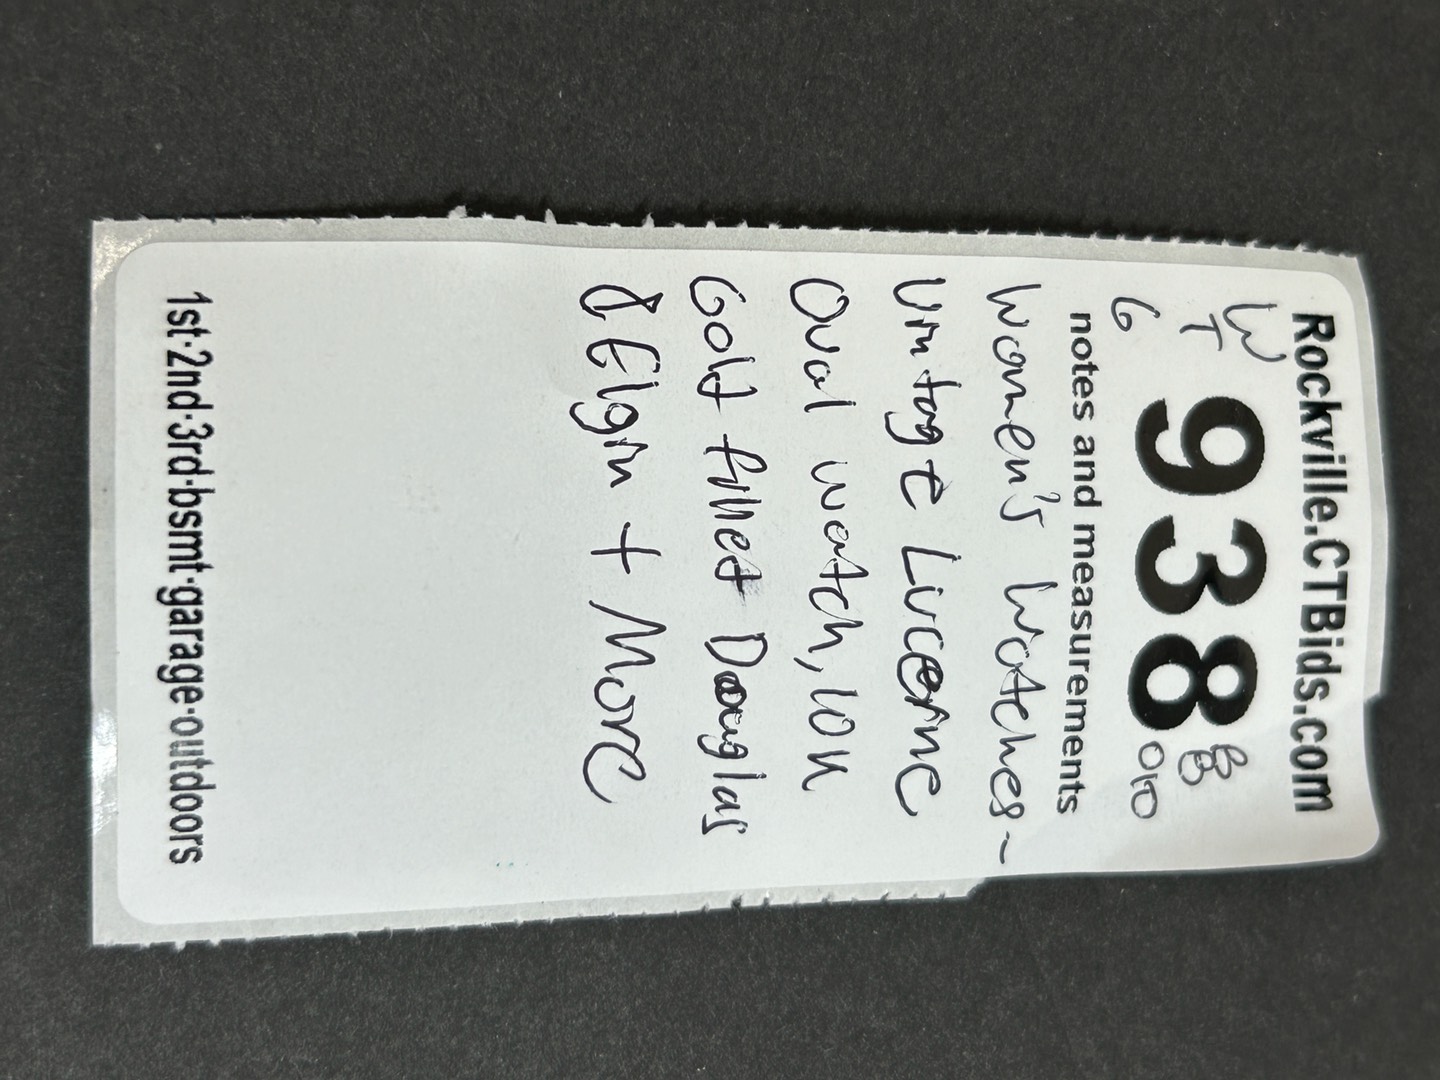 Rockville.CTBids.com
W
T
6
938
notes and measurements
Women's Watches~
Vintage Lucerne
Oval watch, 10K
Gold filled Douglas
& Elgin + More
1st·2nd·3rd·bsmt·garage·outdoors